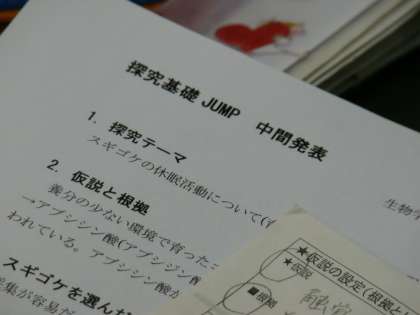 探究基礎 JUMP 中間発表
生物学
1. 探究テーマ
スギゴケの休眠活動について(
2. 仮説と根拠
養分の少ない環境で育ったこ
→アブシシン酸(アブシジン酸
われている。アブシシン酸が
スギゴケを選んだ
集が容易だ
★仮説の設定(根拠と
★仮説
★根拠